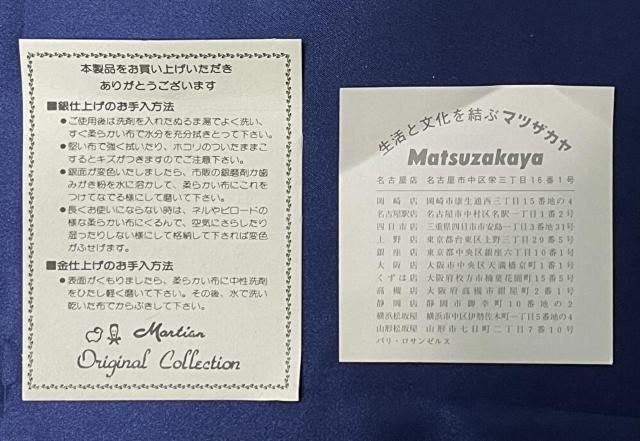 本製品をお買い上げいただき
ありがとうございます
■銀仕上げのお手入方法
●ご使用後は洗剤を入れたぬるま湯でよく洗い、
すぐ柔らかい布で水分を充分拭きとって下さい。
●堅い布で強く拭いたり、ホコリのついたままこ
するとキズがつきますのでご注意下さい。
●銀面が変色いたしましたら、市販の銀磨剤か歯
みがき粉を水に溶かして、柔らかい布にこれを
つけてなでる様にして磨いて下さい。
●長くお使いにならない時は、ネルやビロードの
様な柔らかい布にくるんで、空気にさらしたり
湿ったりしない様にして格納して下されば変色
がふせげます。
■金仕上げのお手入方法
●表面がくもりましたら、柔らかい布に中性洗剤
をひたし軽く磨いて下さい。その後、水で洗い
乾いた布でからぶきして下さい。
Martian
Original Collection
生活と文化を結ぶマツザカヤ
Matsuzakaya
名古屋店 名古屋市中区栄三丁目16番1号
岡崎店 岡崎市康生通西三丁目15番地の4
名古屋駅店 名古屋市中村区名駅一丁目1番2号
四日市店 三重県四日市市安島一丁目3番地31号
上野店 東京都台東区上野三丁目29番5号
銀座店 東京都中央区銀座六丁目10番1号
大阪店 大阪市中央区天満橋京町1番1号
くずは店 大阪府枚方市楠葉花園町15番5号
高槻店 大阪府高槻市紺屋町2番1号
静岡店 静岡市御幸町10番地の2
横浜松坂屋 横浜市中区伊勢佐木町一丁目5番地の4
山形松坂屋 山形市七日町二丁目7番10号
パリ・ロサンゼルス